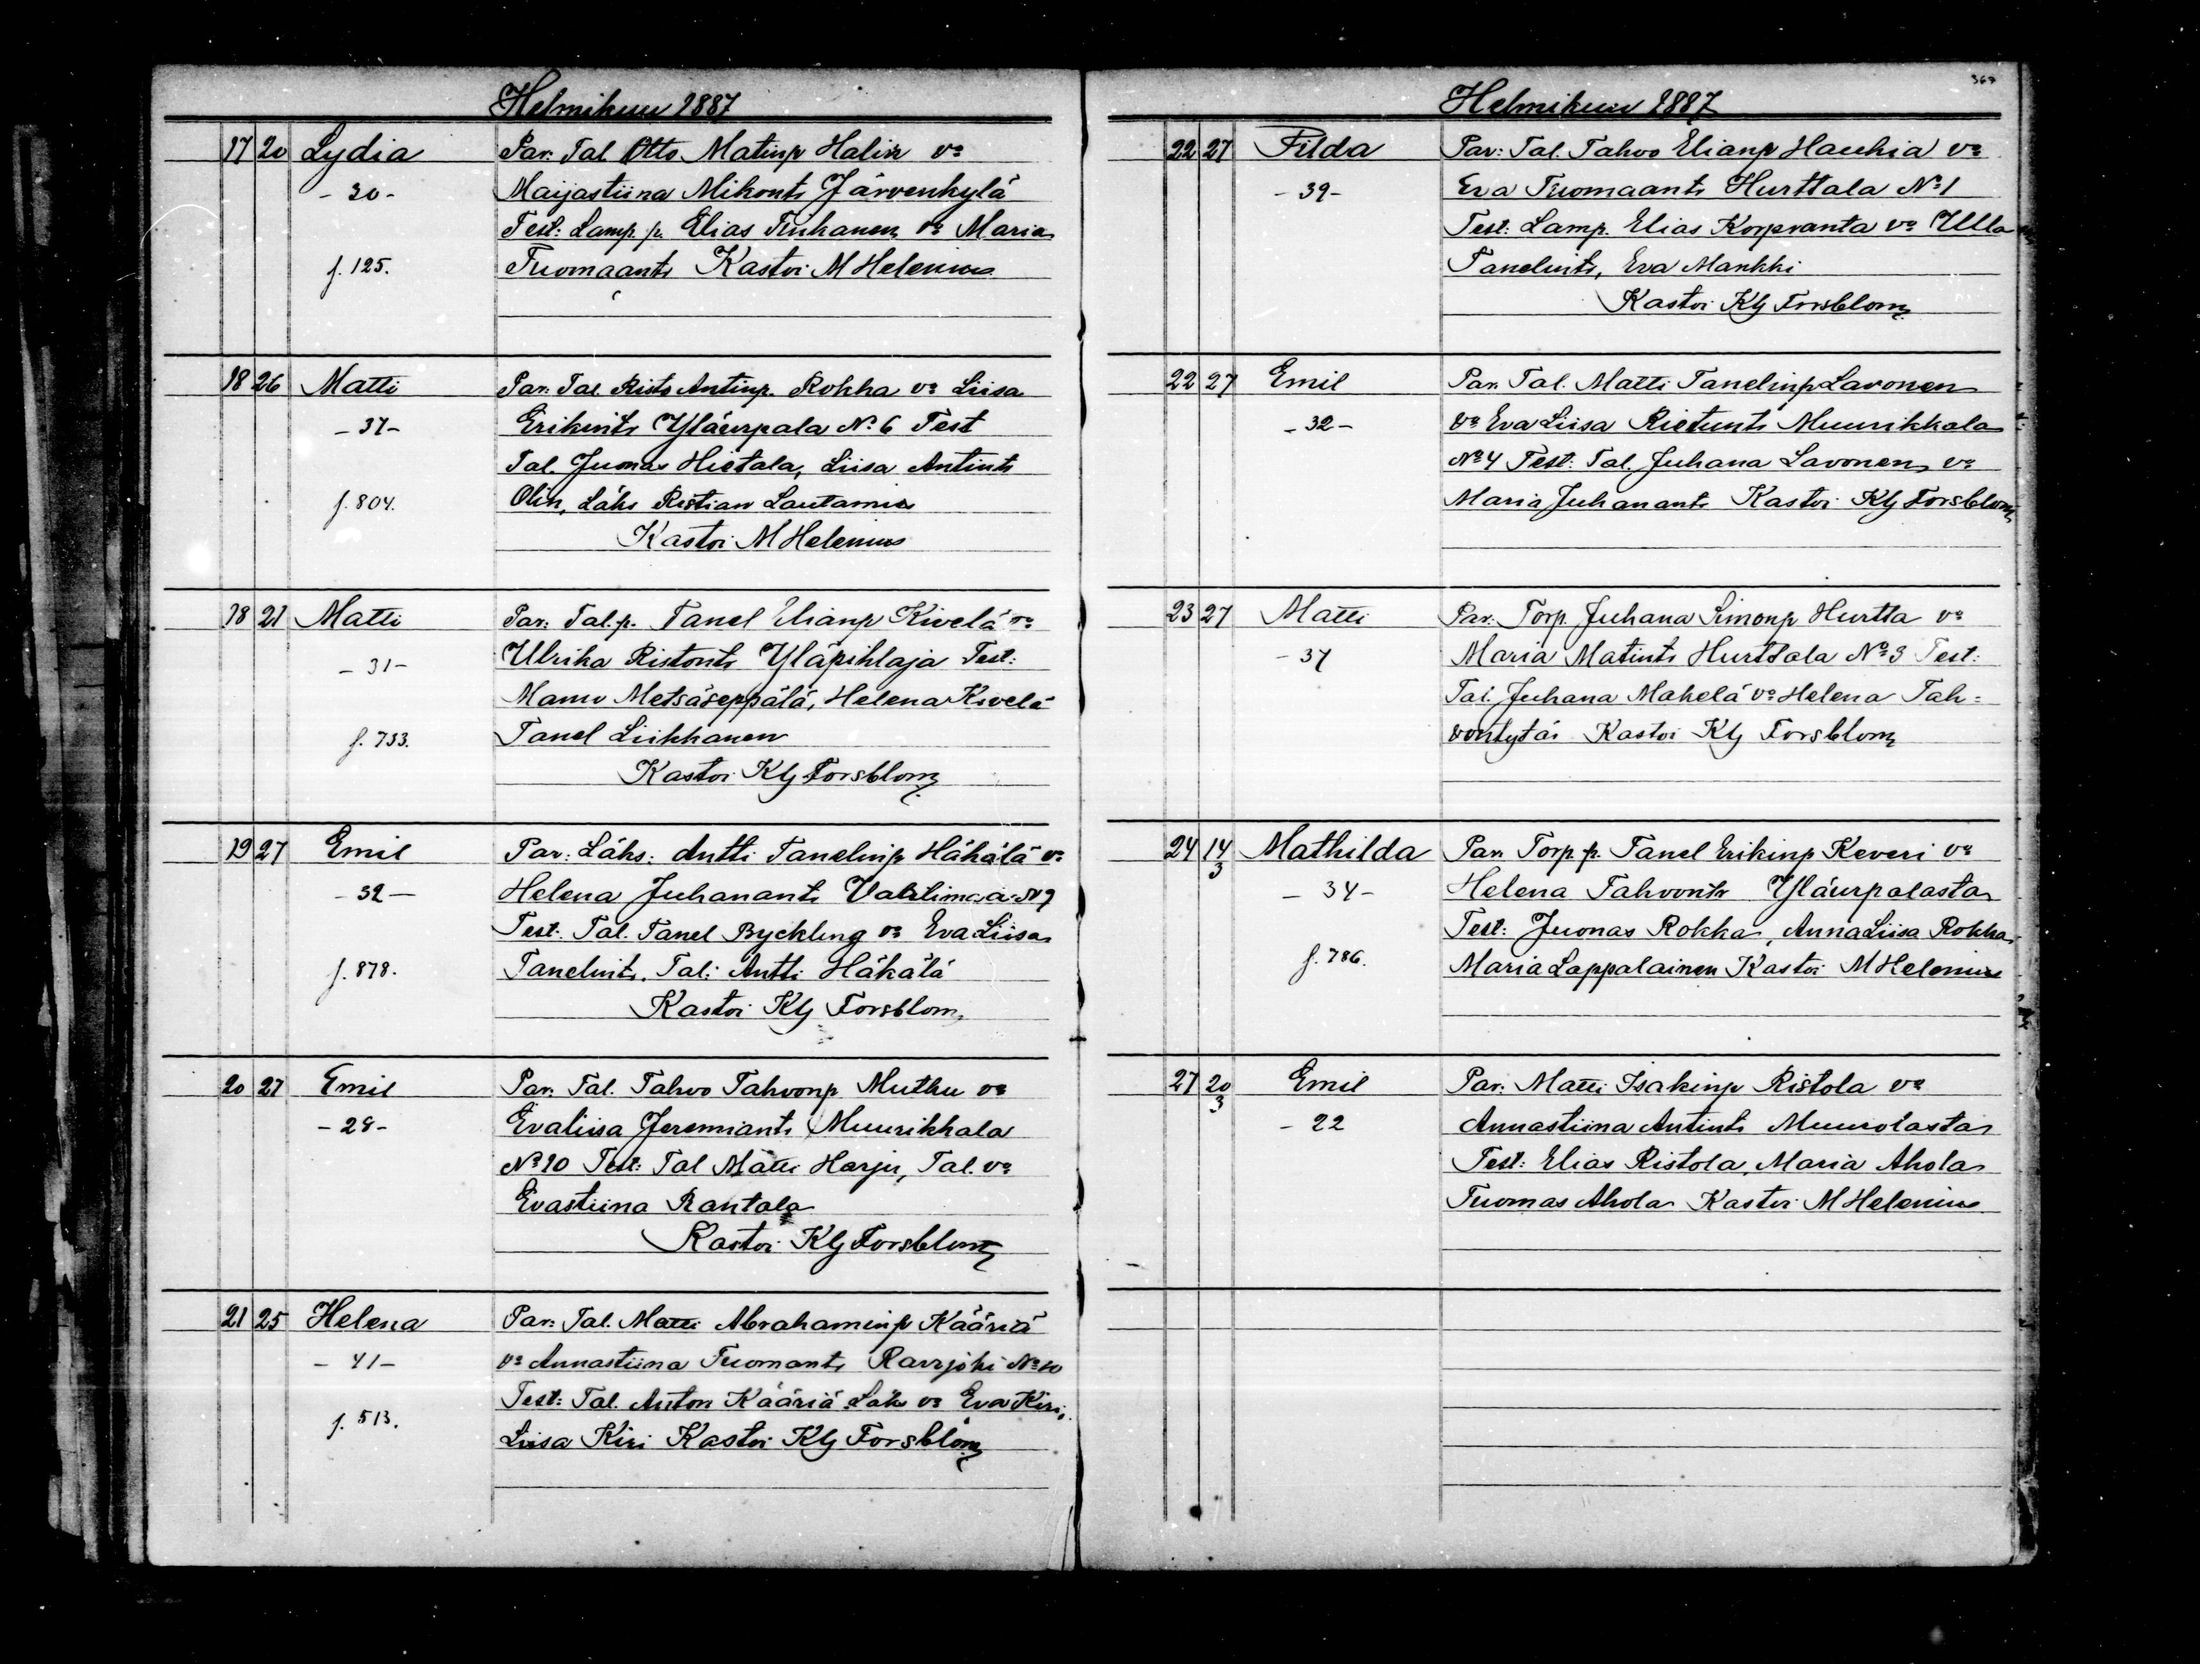 Helmikuu 1887
17 20 Lydia Par: Tal Otto Matinp Halin va
- 30 - Maijastiina Mikonts Järvenkylä
Test: Lamp. p. Elias Tiuhanen va Maria
f. 125. Tuomaants Kastoi M Helenius
18 26 Matti Par: Tal. Risto Antinp. Rokka va Liisa
- 37 - Erikints Yläurpala No 6 Test
Tal. Juonas Hietala, Liisa Antints
f. 804. Olin, Läks Ristian Lautamies
Kastoi M Helenius
18 21 Matti Par: Tal. p. Tanel Elianp Kivelä va
- 31 - Ulrika Ristonts Yläpihlaja Test:
Manu Metsäseppälä, Helena Kivelä
f. 733. Tanel Liikkanen
Kastoi Klj Forsblom
19 27 Emil Par: Läks: Antti Tanelinp Häkälä va
- 32 - Helena Juhanants No 7
Test: Tal. Tanel Byckling va Eva Liisa
f. 878. Tanelints, Tal: Antti Häkälä
Kastoi Klj Forsblom
20 27 Emil Par: Tal. Tahvo Tahvonp Mutku va
- 28 - Evaliisa Jeremiants Muurikkala
No 10 Test: Tal Matti Harju, Tal. va
Evastiina Rantala
Kastoi Klj Forsblom
21 25 Helena Par: Tal. Matti Abrahaminp Kääriä
- 41 - va Annastiina Tuomants Ravijoki No 10
Test: Tal. Anton Kääriä Läk va Eva Kiri,
f. 513. Liisa Kiri Kastoi Klj Forsblom
367
Helmikuu 1887
22 27 Filda Par: Tal. Tahvo Elianp Haukia va
- 39 - Eva Tuomaants Hurttala No 1
Test: Lamp. Elias Korpvanta va Ulla
Tanelints, Eva Mankki
Kastoi Klj Forsblom
22 27 Emil Par: Tal. Matti Tanelinp Lavonen
- 32 - va Eva Liisa Muurikkala
No 4 Test: Tal. Juhana Lavonen va
Maria Juhanants Kastoi Klj Forsblom
23 27 Matti Par: Torp. Juhana Simonp Hurtta va
- 37 Maria Matints Hurttala No 3 Test:
Tal. Juhana Mäkelä va Helena Tah=
vontytär Kastoi Klj Forsblom
24 14/3 Mathilda Par: Torp. p. Tanel Erikinp Keveri va
- 34 - Helena Tahvonts Yläurpalasta
Test: Juonas Rokka, Anna Liisa Rokka,
f. 786. Maria Lappalainen Kastoi M Helenius
27 20/3 Emil Par: Matti Isakinp Ristola va
- 22 Annastiina Antints Muurolasta
Test: Elias Ristola, Maria Ahola
Tuomas Ahola Kastoi M Helenius